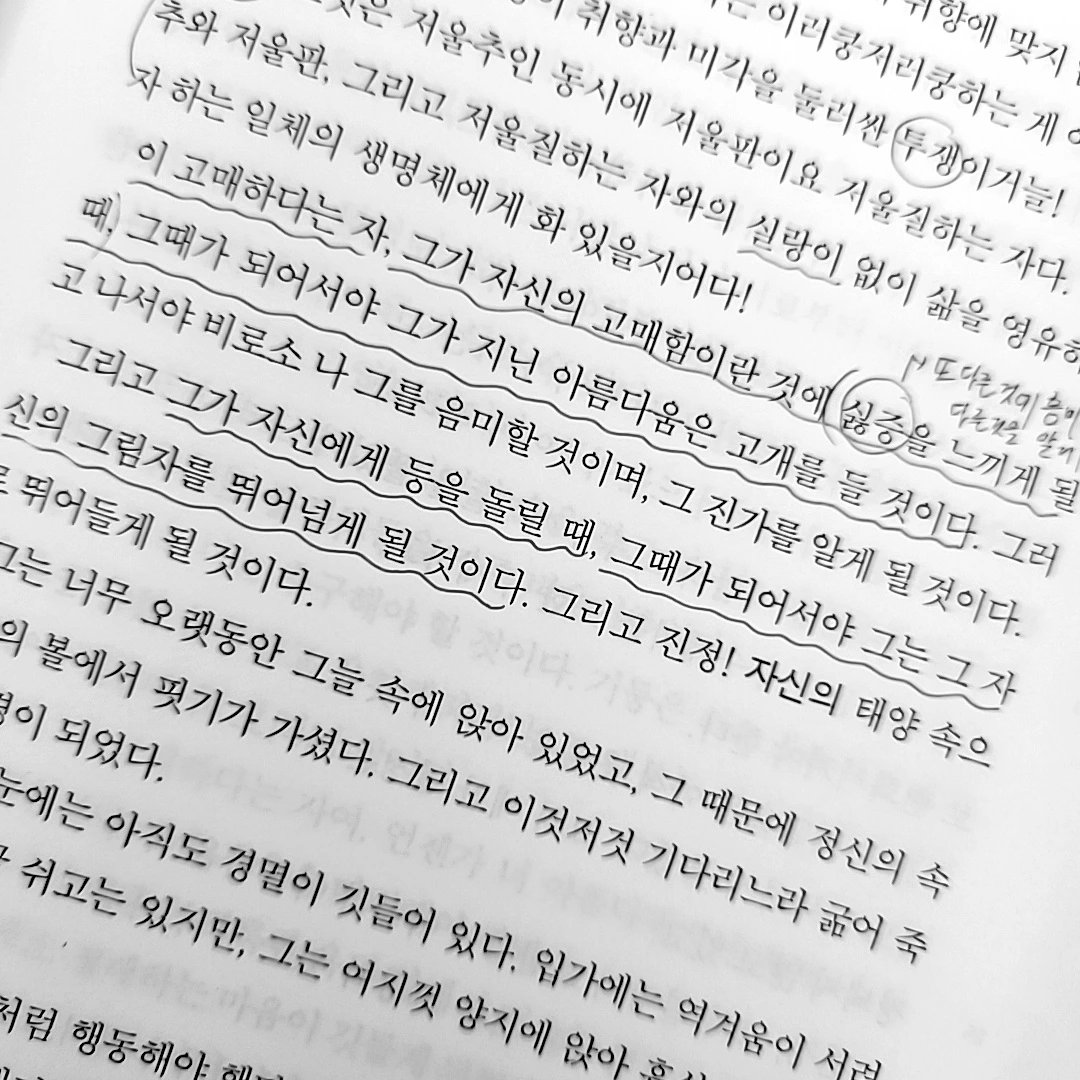 취향에 맞지
는 이러쿵저러쿵하는 게
취향과 미각을 둘러싼 투쟁이거늘!
은 저울추인 동시에 저울판이요 저울질하는 자다.
추와 저울판, 그리고 저울질하는 자와의 실랑이 없이 삶을 영유하
자 하는 일체의 생명체에게 화 있을지어다!
이 고매하다는 자, 그가 자신의 고매함이란 것에 싫증을 느끼게 될
때, 그때가 되어서야 그가 지닌 아름다움은 고개를 들 것이다. 그러
고 나서야 비로소 나 그를 음미할 것이며, 그 진가를 알게 될 것이다.
그리고 그가 자신에게 등을 돌릴 때, 그때가 되어서야 그는 그 자
신의 그림자를 뛰어넘게 될 것이다. 그리고 진정! 자신의 태양 속으
로 뛰어들게 될 것이다.
그는 너무 오랫동안 그늘 속에 앉아 있었고, 그 때문에 정신의 속
의 볼에서 핏기가 가셨다. 그리고 이것저것 기다리느라 굶어 죽
이 되었다.
눈에는 아직도 경멸이 깃들어 있다. 입가에는 역겨움이 서려
쉬고는 있지만, 그는 여지껏 양지에 앉아
처럼 행동해야
또다른 것이
다른것을